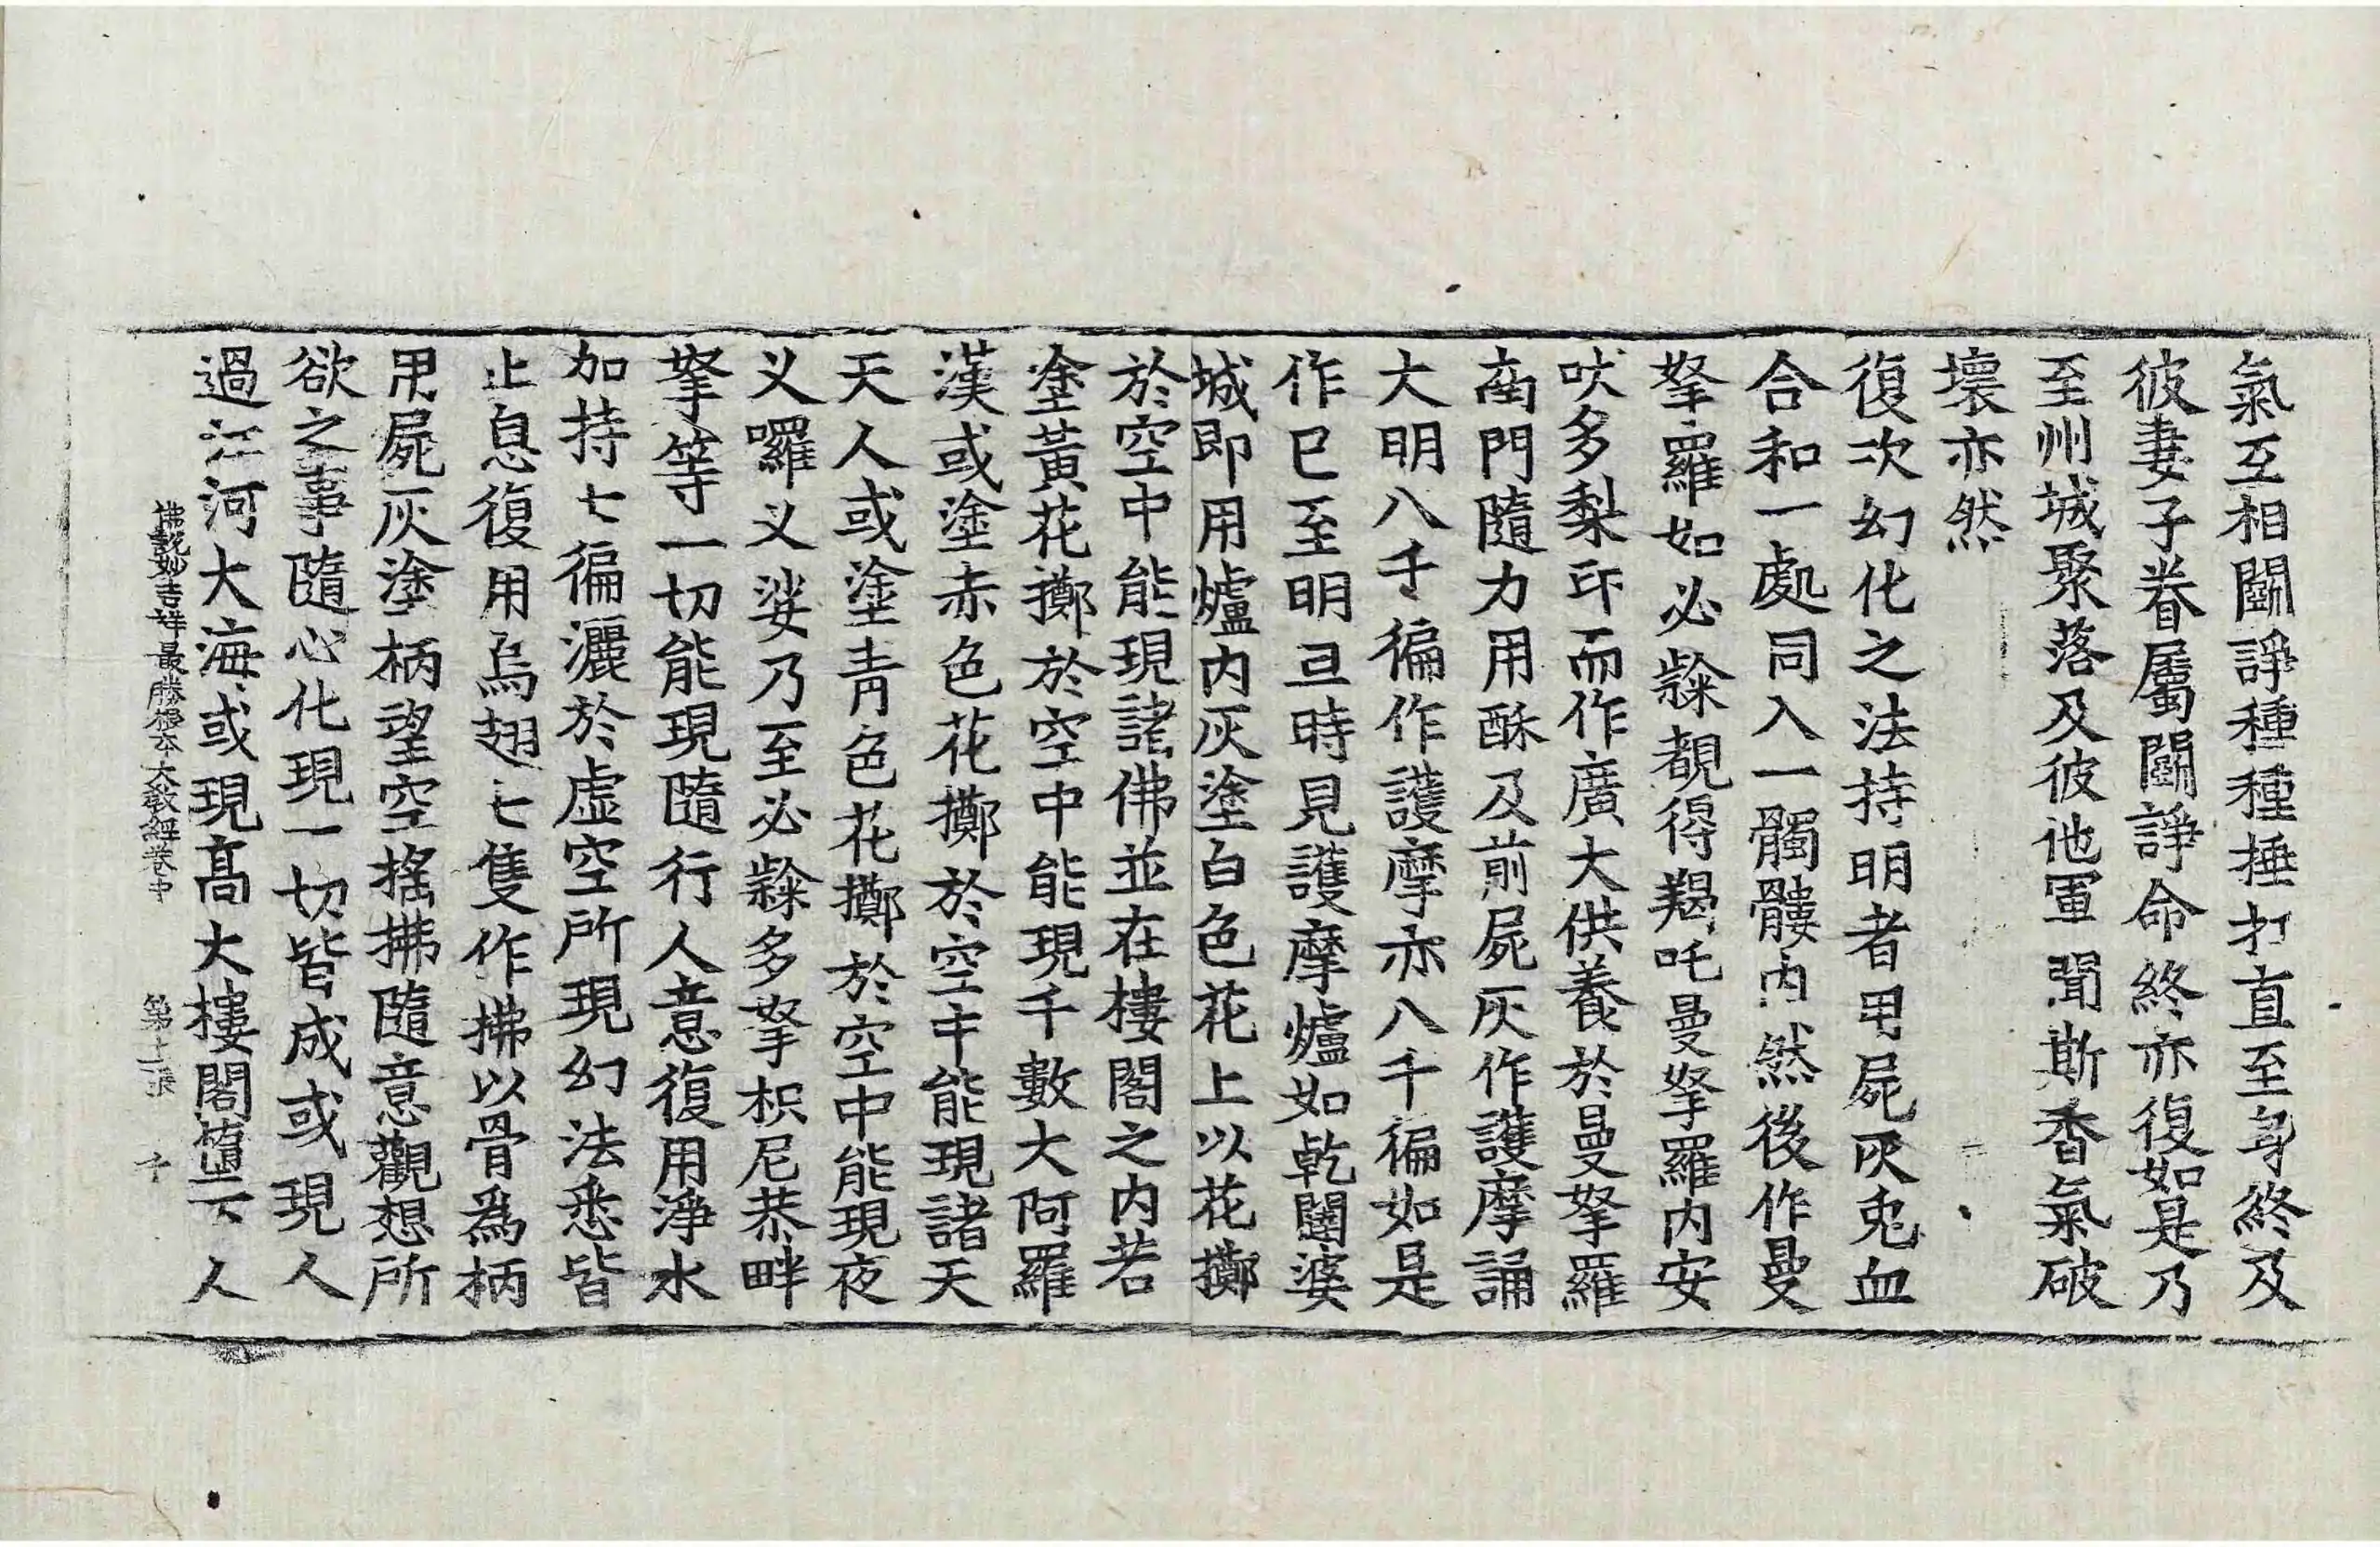 氣互相鬬諍種種捶打直至身終及
彼妻子眷屬鬬諍命終亦復如是乃
至州城聚落及彼他軍聞斯香氣破
壞亦然
復次幻化之法持明者用屍灰兎血
合和一處同入一髑髏內然後作曼
拏羅如必隸覩得羯吒曼拏羅內安
吠多梨印而作廣大供養於曼拏羅
南門隨力用酥及前屍灰作護摩誦
大明八千徧作護摩亦八千徧如是
作已至明旦時見護摩爐如乾闥婆
城即用爐內灰塗白色花上以花擲
於空中能現諸佛並在樓閣之內若
塗黃花擲於空中能現千數大阿羅
漢或塗赤色花擲於空中能現諸天
天人或塗青色花擲於空中能現夜
叉囉叉娑乃至必隸多拏枳尼恭畔
拏等一切能現隨行人意復用淨水
加持七徧灑於虛空所現幻法悉皆
止息復用烏翅七隻作拂以骨爲柄
用屍灰塗柄望空搖拂隨意觀想所
欲之事隨心化現一切皆成或現人
過江河大海或現髙大樓閣墮下人
佛說妙吉祥最勝根本大教經卷中 第十二張 千